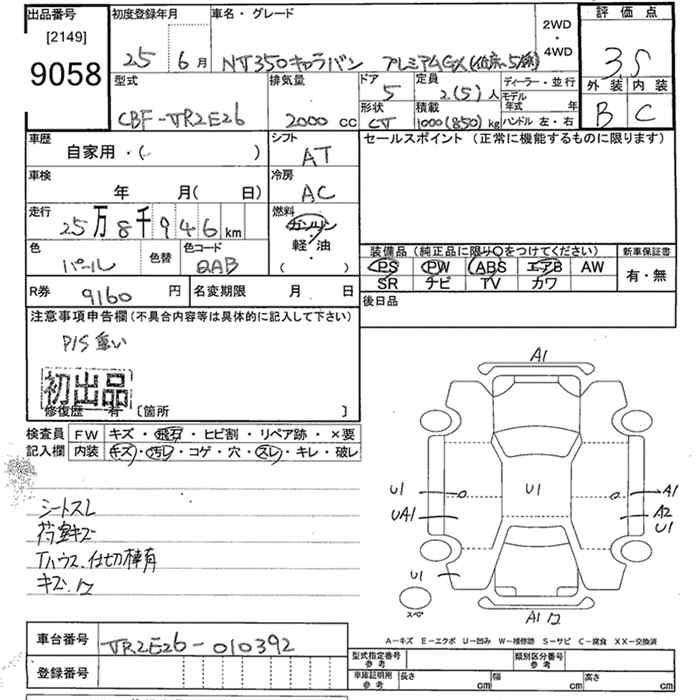 出品番号 初度登録年月 車名・グレード 2WD ・ 4WD 評価点
[2149]
9058
25 6月 NT350キャラバン プレミアムGX(低床・5ドア) 3.5
型式 排気量 ドア 定員 ディーラー・並行 外装 内装
CBF-VR2E26 2000cc 5 2(5)人 モデル年式 年 B C
形状 積載 ハンドル 左・右
CV 1000(850)kg
車歴 シフト セールスポイント(正常に機能するものに限ります)
自家用・( ) AT
車検 冷房
年 月( 日) AC
走行 燃料
25万8千946km ガソリン・軽油
( )
色 色替 色コード 装備品(純正品に限り○をつけてください) 新車保証書
パール QAB PS PW ABS エアB AW 有・無
SR ナビ TV カワ
R券 9160円 名変期限 月 日 後日品
注意事項申告欄(不具合内容等は具体的に記入して下さい)
P/S重い
初出品
修復歴 有 [箇所 ]
検査員 FW キズ・飛石・ヒビ割・リペア跡・×要
記入欄 内装 キズ・汚レ・コゲ・穴・スレ・キレ・破レ
シートスレ
荷室キズ
Tハウス、仕切棒有
キズ、凹
A1
U1 U1 A1
UA1 A2
U1
U1
スペア
A1凹
A-キズ E-エクボ U-凹み W-補修跡 S-サビ C-腐食 XX-交換済
車台番号 VR2E26-010392
型式指定番号参考 類別区分番号参考
登録番号 車庫証明用参考 長さ cm 幅 cm 高さ cm